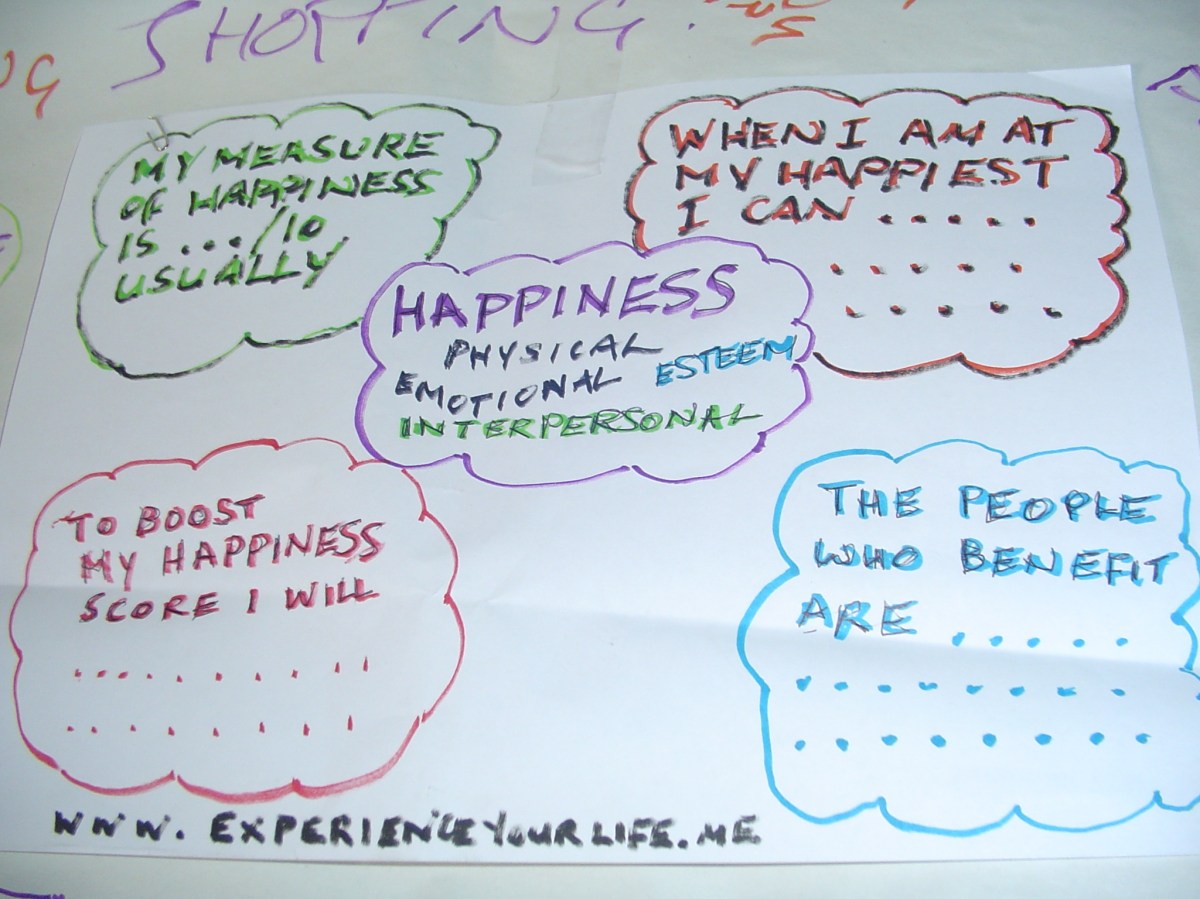 SHOPPING.
MY MEASURE
OF HAPPINESS
IS .../10
USUALLY
WHEN I AM AT
MY HAPPIEST
I CAN .....
.....
.....
HAPPINESS
PHYSICAL
EMOTIONAL ESTEEM
INTERPERSONAL
TO BOOST
MY HAPPINESS
SCORE I WILL
..........
........
THE PEOPLE
WHO BENEFIT
ARE .....
........
........
WWW.EXPERIENCEYOURLIFE.ME